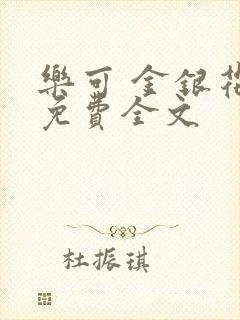 樂可 金銀花
免費全文
杜振琪